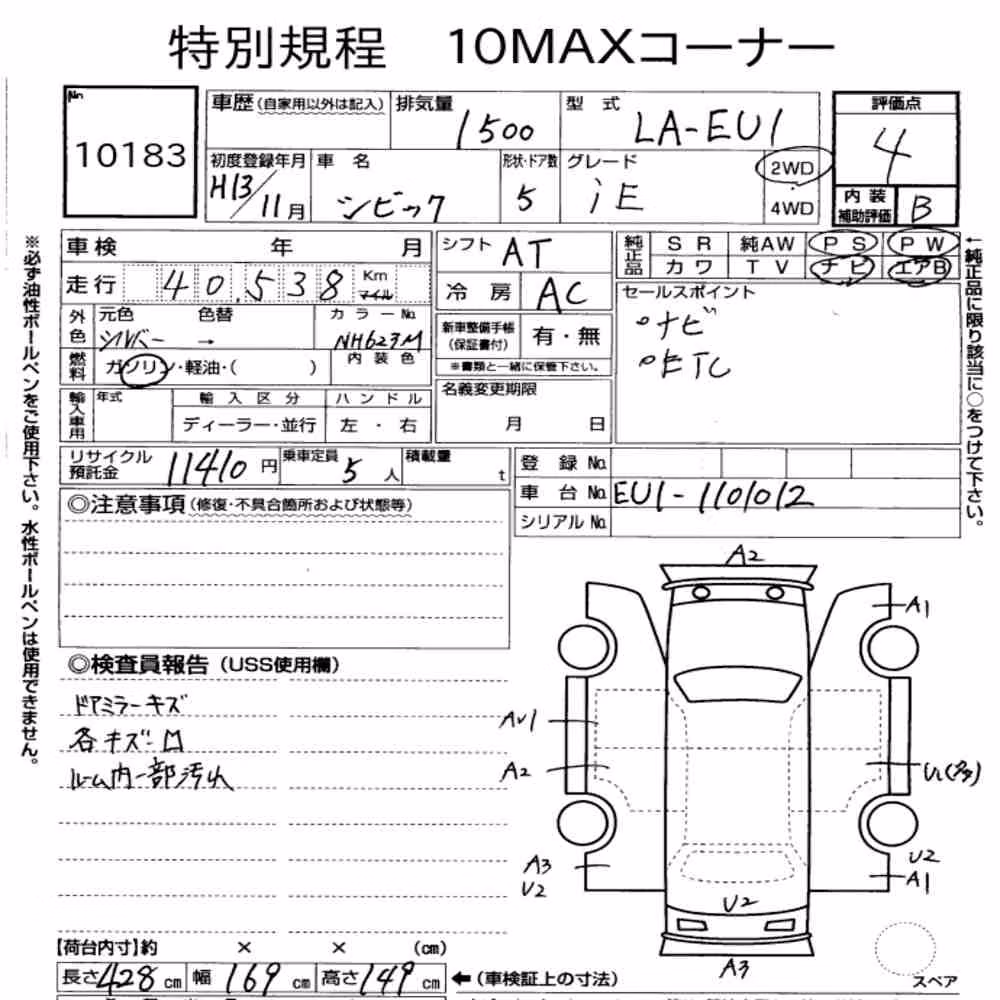 特別規程 10MAXコーナー
No. 10183
車歴 (自家用以外は記入)
排気量 1500
型式 LA-EU1
評価点 4
初度登録年月 H13/11月
車名 シビック
形状・ドア数 5
グレード iE
2WD
4WD
内装補助評価 B
車検 年 月
走行 40,538 Km マイル
シフト AT
冷房 AC
純正品 SR 純AW PS PW
カワ TV ナビ エアB
外色 元色 シルバー → 色替
カラーNo. NH623M
内装色
燃料 ガソリン・軽油・( )
新車整備手帳(保証書付) 有・無
※書類と一緒に保管下さい。
セールスポイント
○ナビ
○ETC
輸入車用 年式 輸入区分 ハンドル
ディーラー・並行 左・右
名義変更期限
月 日
リサイクル預託金 11410円
乗車定員 5人
積載量 t
登録No.
車台No. EU1-1101012
シリアルNo.
◎注意事項 (修復・不具合箇所および状態等)
◎検査員報告 (USS使用欄)
ドアミラーキズ
各キズ凹
ルーム内一部汚れ
A2
A1
AU1
A2
U1(多)
A3
U2
U2
A1
U2
A3
スペア
【荷台内寸】約 × × (cm)
長さ428cm 幅169cm 高さ149cm ←(車検証上の寸法)
※必ず油性ボールペンをご使用下さい。水性ボールペンは使用できません。
←純正品に限り該当に○をつけて下さい。